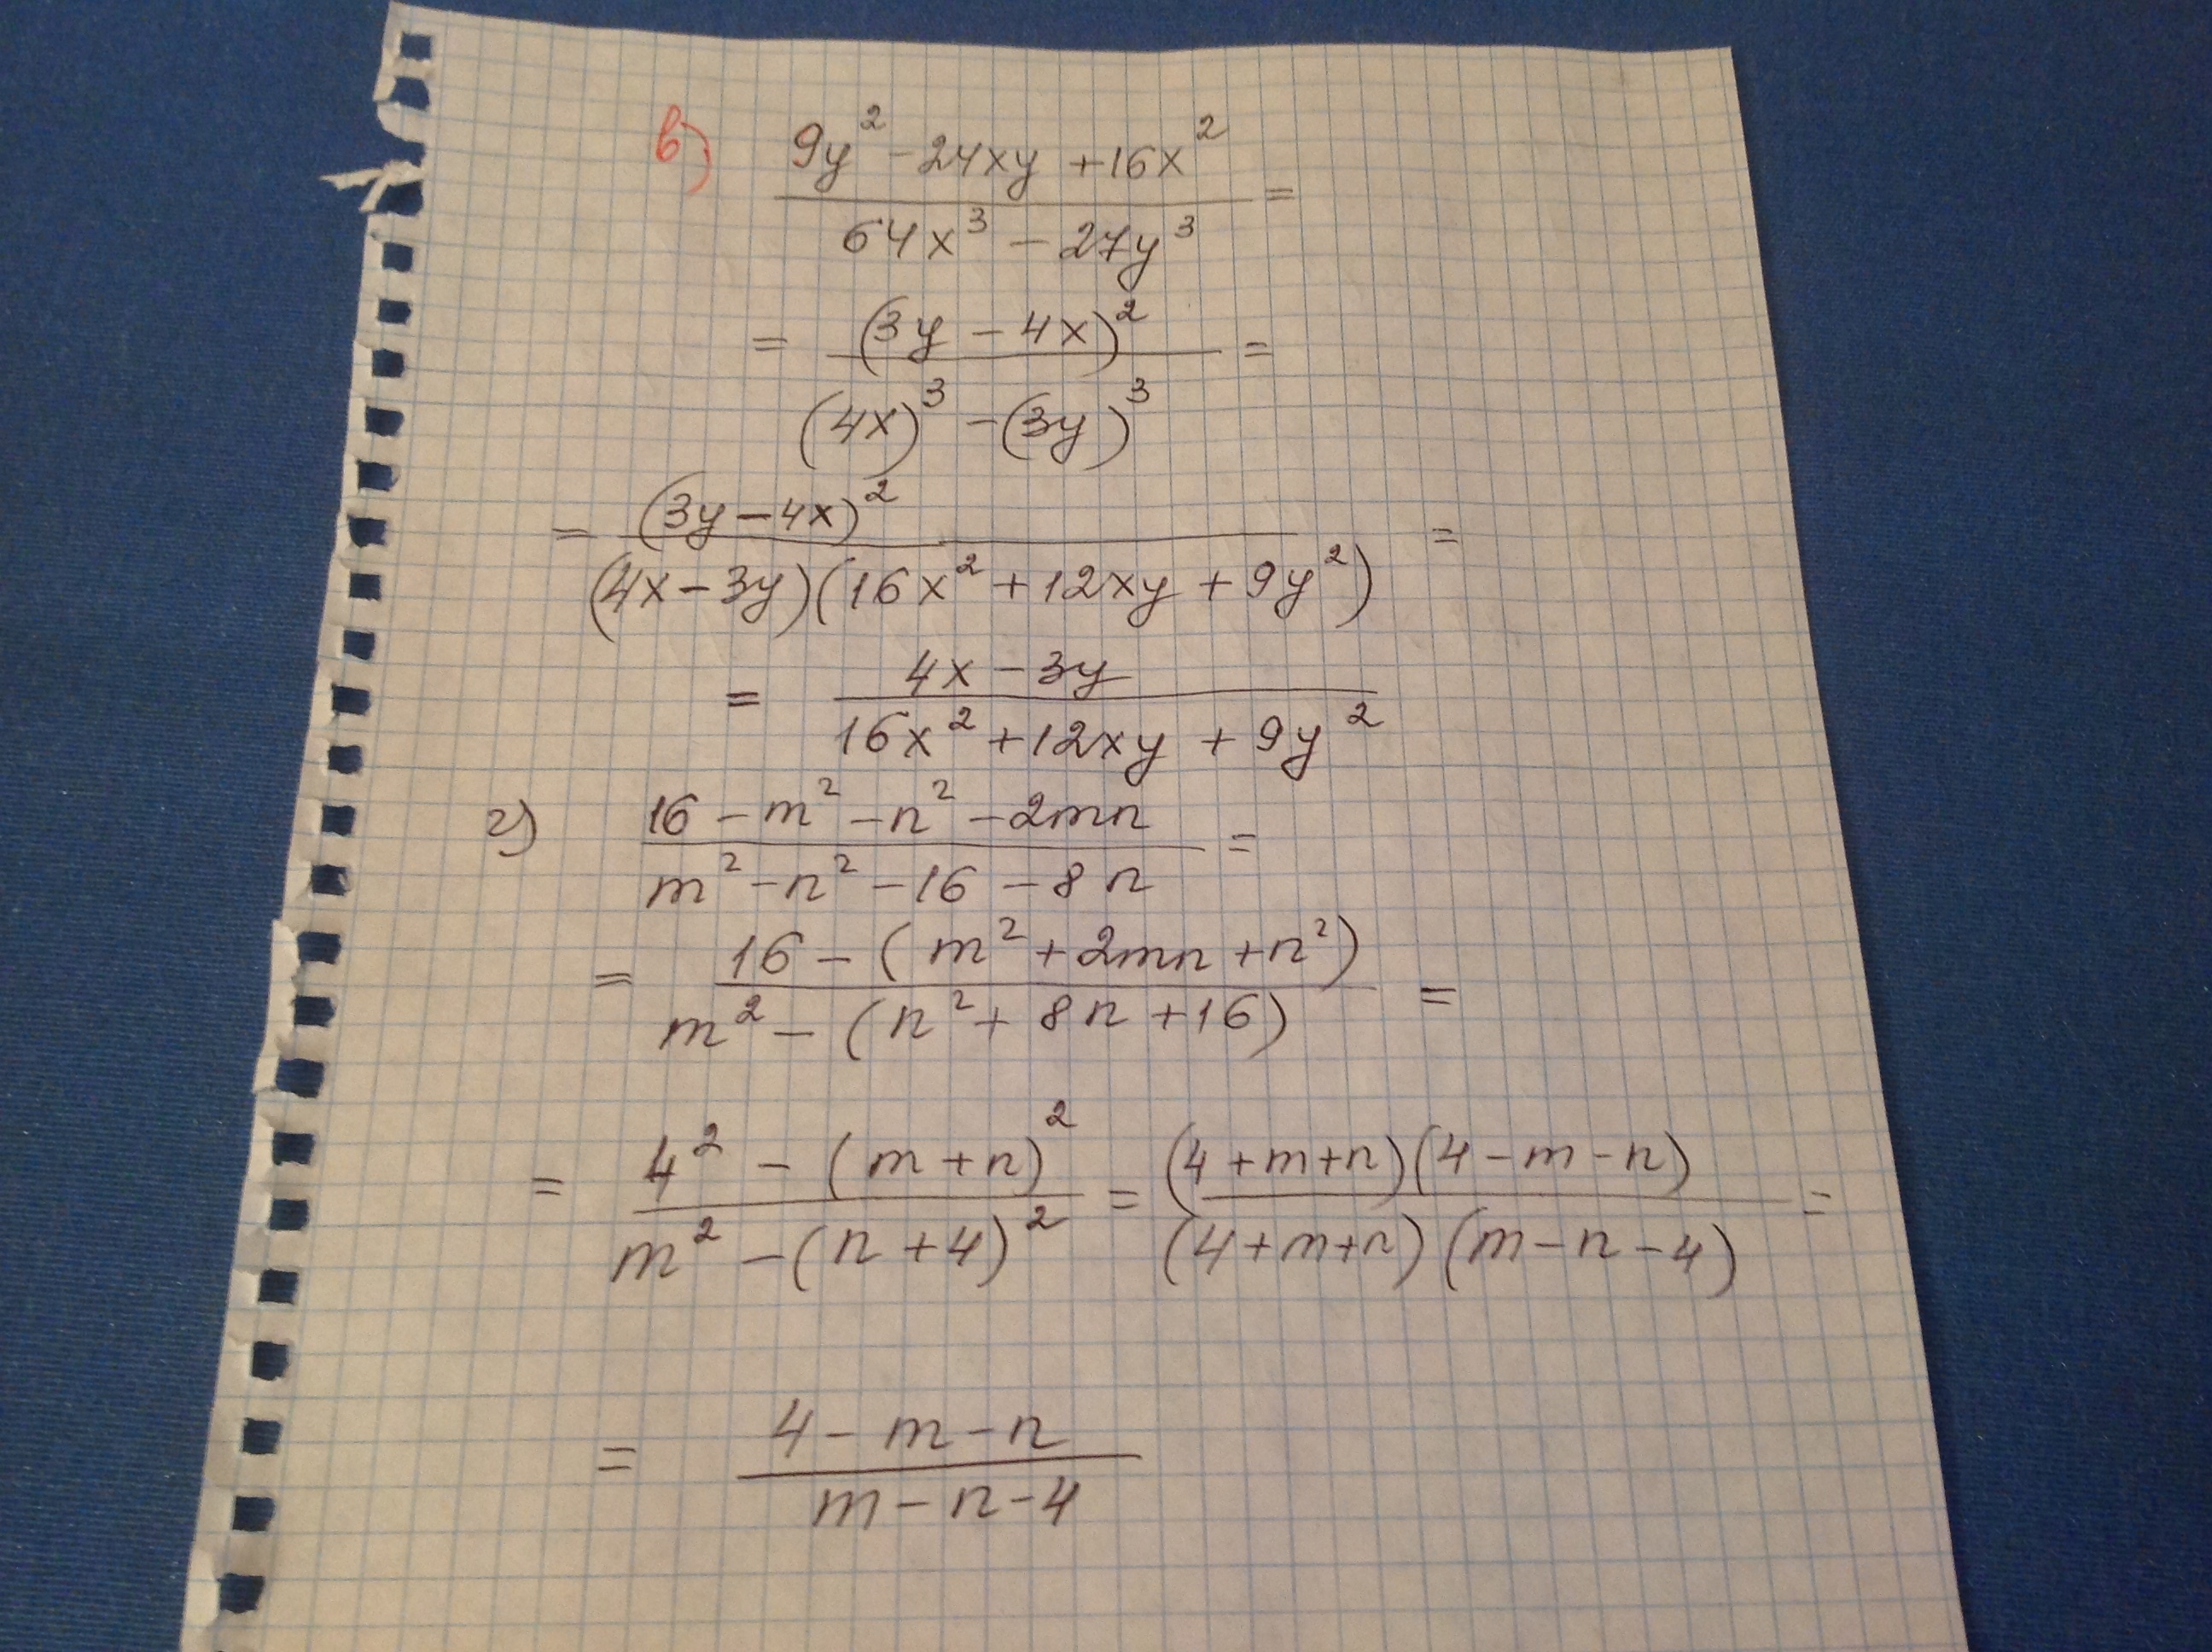 в) (9y² - 24xy + 16x²) / (64x³ - 27y³) =
= (3y - 4x)² / ((4x)³ - (3y)³) =
= (3y - 4x)² / ((4x - 3y)(16x² + 12xy + 9y²)) =
= (4x - 3y) / (16x² + 12xy + 9y²)
г) (16 - m² - n² - 2mn) / (m² - n² - 16 - 8n) =
= (16 - (m² + 2mn + n²)) / (m² - (n² + 8n + 16)) =
= (4² - (m + n)²) / (m² - (n + 4)²) = ((4 + m + n)(4 - m - n)) / ((4 + m + n)(m - n - 4)) =
= (4 - m - n) / (m - n - 4)